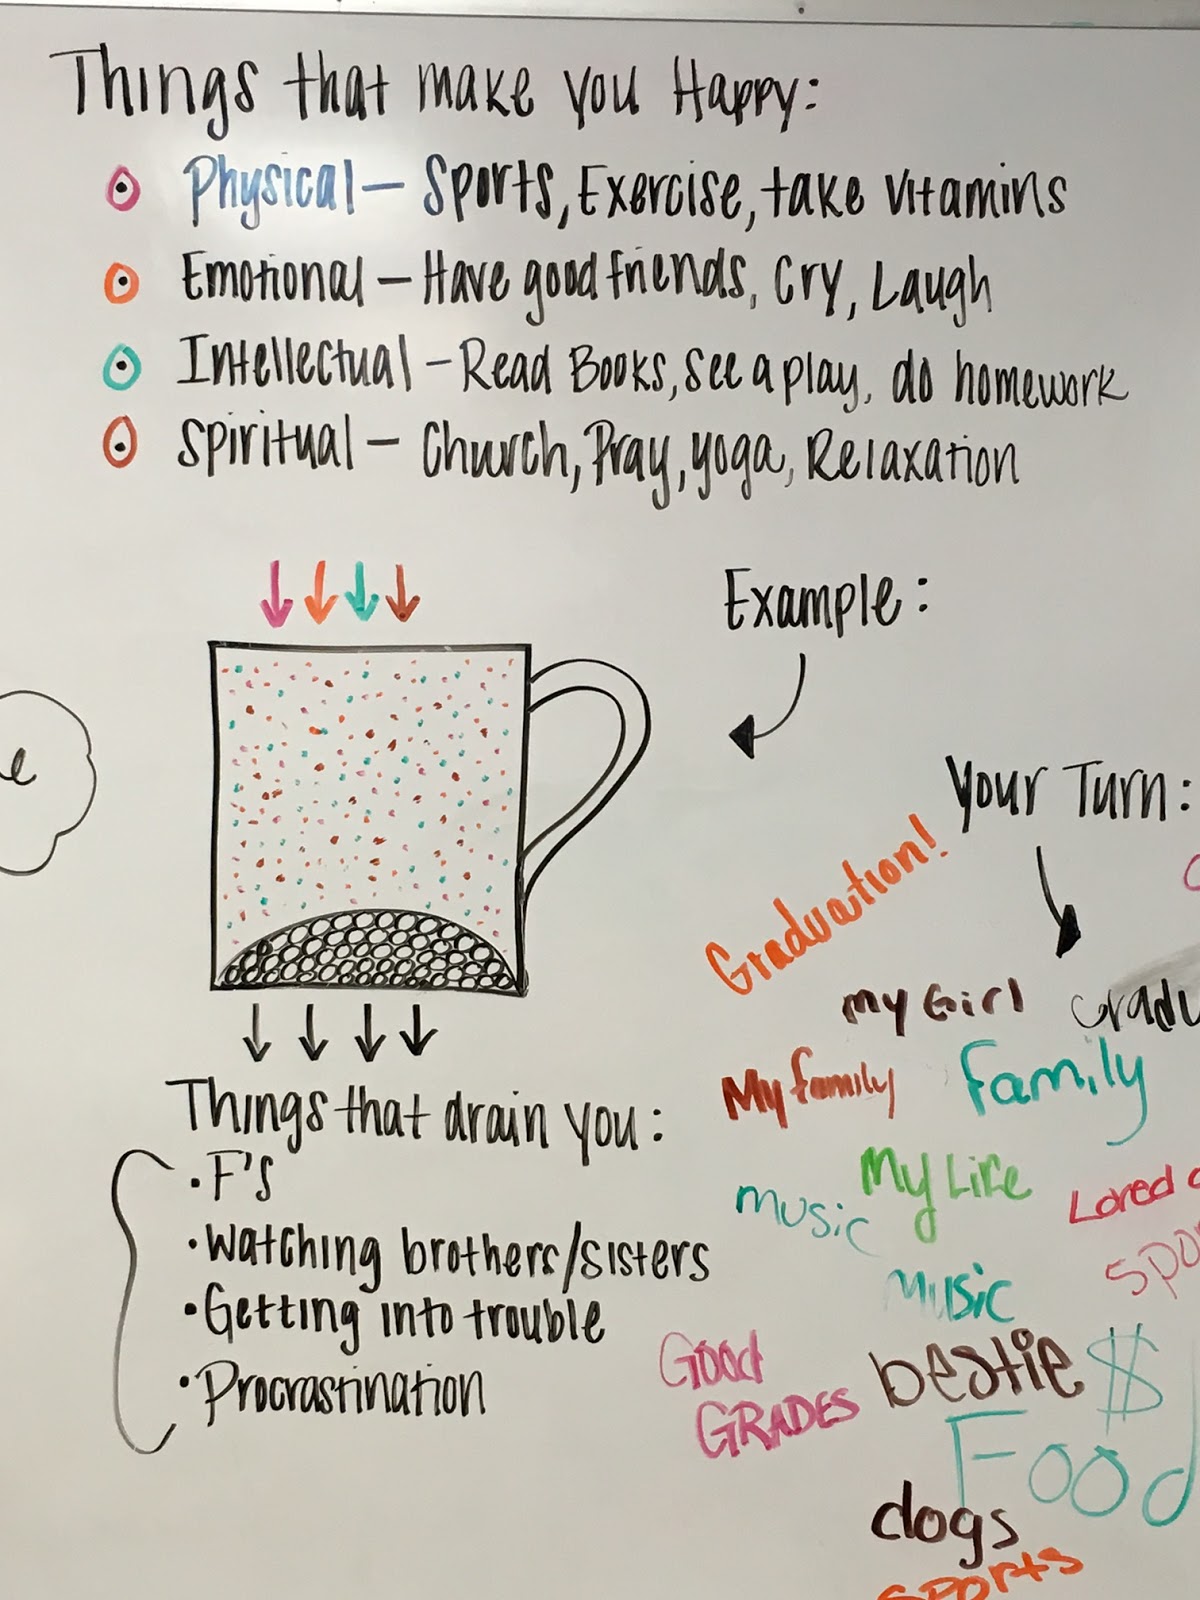 Things that make you Happy:
Physical — Sports, Exercise, take vitamins
Emotional — Have good friends, Cry, Laugh
Intellectual — Read Books, see a play, do homework
Spiritual — Church, Pray, yoga, Relaxation
Example:
Your Turn:
Graduation!
My Girl
My family
Family
My Life
music
Loved
Music
Good
GRADES
bestie
$
Food
dogs
Sports
Things that drain you:
• F's
• Watching brothers/sisters
• Getting into trouble
• Procrastination